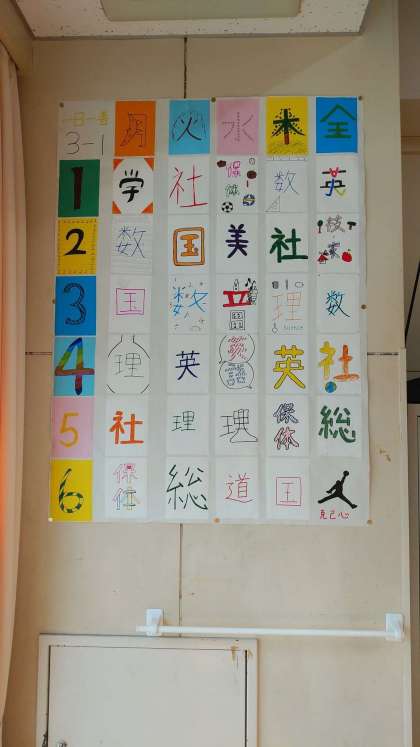 一日一善 月 火 水 木 金
3-1
1 学 社 保体 数 英
2 数 国 美 社 技家
3 国 数 音 理 数
Science
4 理 英 英語 英 社
5 社 理 理 保体 総
6 保体 総 道 国
克己心